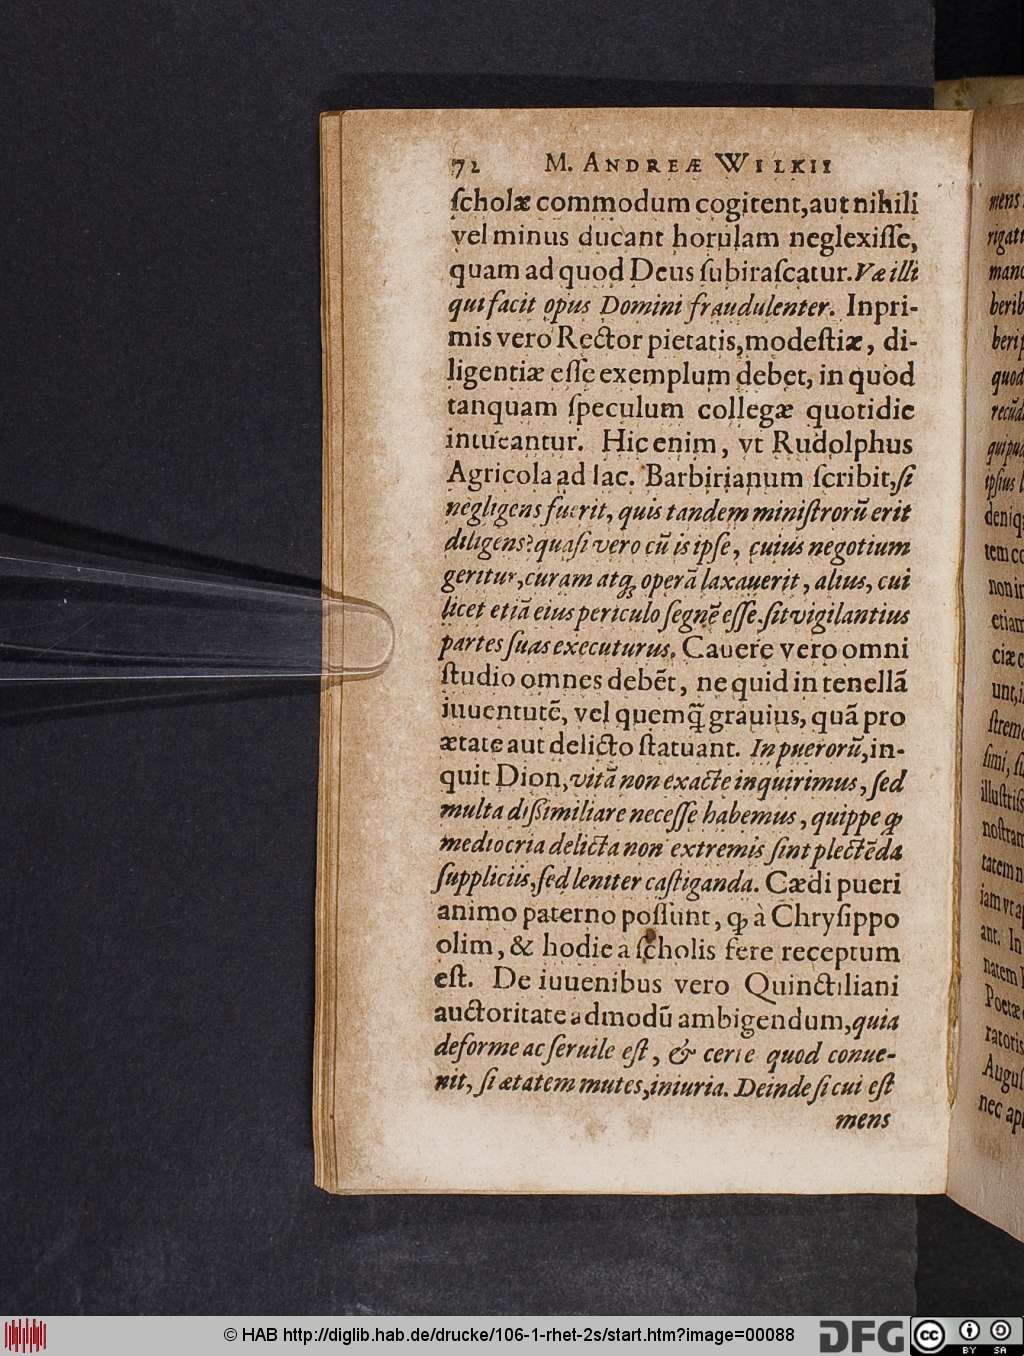 72 M. ANDREÆ WILKII
ſcholæ commodum cogitent, aut nihili
vel minus ducant horulam neglexiſſe,
quam ad quod Deus ſubiraſcatur. Væ illi
qui facit opus Domini fraudulenter. Inpri-
mis vero Rector pietatis, modeſtiæ, di-
ligentiæ eſſe exemplum debet, in quod
tanquam ſpeculum collegæ quotidie
intueantur. Hic enim, vt Rudolphus
Agricola ad Iac. Barbirianum ſcribit, ſi
negligens fuerit, quis tandem miniſtrorũ erit
diligens? quaſi vero cũ is ipſe, cuius negotium
geritur, curam atq; operã laxauerit, alius, cui
licet etiã eius periculo ſegnẽ eſſe. ſit vigilantius
partes ſuas executurus. Cavere vero omni
ſtudio omnes debẽt, ne quid in tenellã
iuuentutẽ, vel quemq̃ grauius, quã pro
ætate aut delicto ſtatuant. In puerorũ, in-
quit Dion, vitã non exacte inquirimus, ſed
multa diſſimiliare neceſſe habemus, quippe ꝙ
mediocria delicta non extremis ſint plectẽda
ſuppliciis, ſed leniter caſtiganda. Cædi pueri
animo paterno poſſunt, ꝙ à Chryſippo
olim, & hodie a ſcholis fere receptum
eſt. De iuuenibus vero Quinctiliani
auctoritate admodũ ambigendum, quia
deforme ac ſeruile eſt, & certe quod conue-
nit, ſi ætatem mutes, iniuria. Deinde ſi cui eſt
mens
mens
rigati
beri
quod
ipſius
deniq;
non in
etiam
ciæ
unt, i
ſimi, ſu
illuſtriſ
noſtram
tatem n
iam vt a
ant. In
natem
Poetæ
ratoris
Auguſ
nec ap
© HAB http://diglib.hab.de/drucke/106-1-rhet-2s/start.htm?image=00088
DFG
cc
BY SA